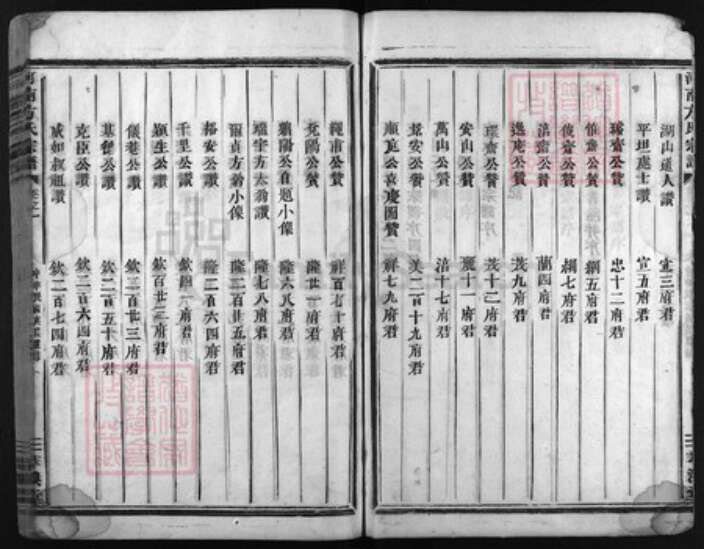 湖山道人讚 宣三府君
平垣處士讚 宣五府君
瑤齋公贊 忠十二府君
惟齋公贊 捌五府君
俊齋公贊 捌七府君
潔齋公贊 蘭四府君
逸庵公贊 茂九府君
環齋公贊 茂十二府君
安山公贊 麗十一府君
萬山公贊 涪十七府君
景安公贊 美二百十九府君
順庭公喜慶圖贊 祥七九府君
繩甫公贊 祥百七十府君
堯陽公贊 隆廿一府君
嶺陽公自題小像 隆六八府君
瑞宇方太翁讚 隆七八府君
爾貞方翁小像 隆二百廿五府君
裕安公讚 隆二百六四府君
千里公讚 欽四一府君
順生公讚 欽百廿二府君
儀巷公讚 欽二百廿三府君
基餐公讚 欽二百五十府君
克臣公讚 欽二百六四府君
咸如叔祖讚 欽二百七四府君
河南方氏宗譜